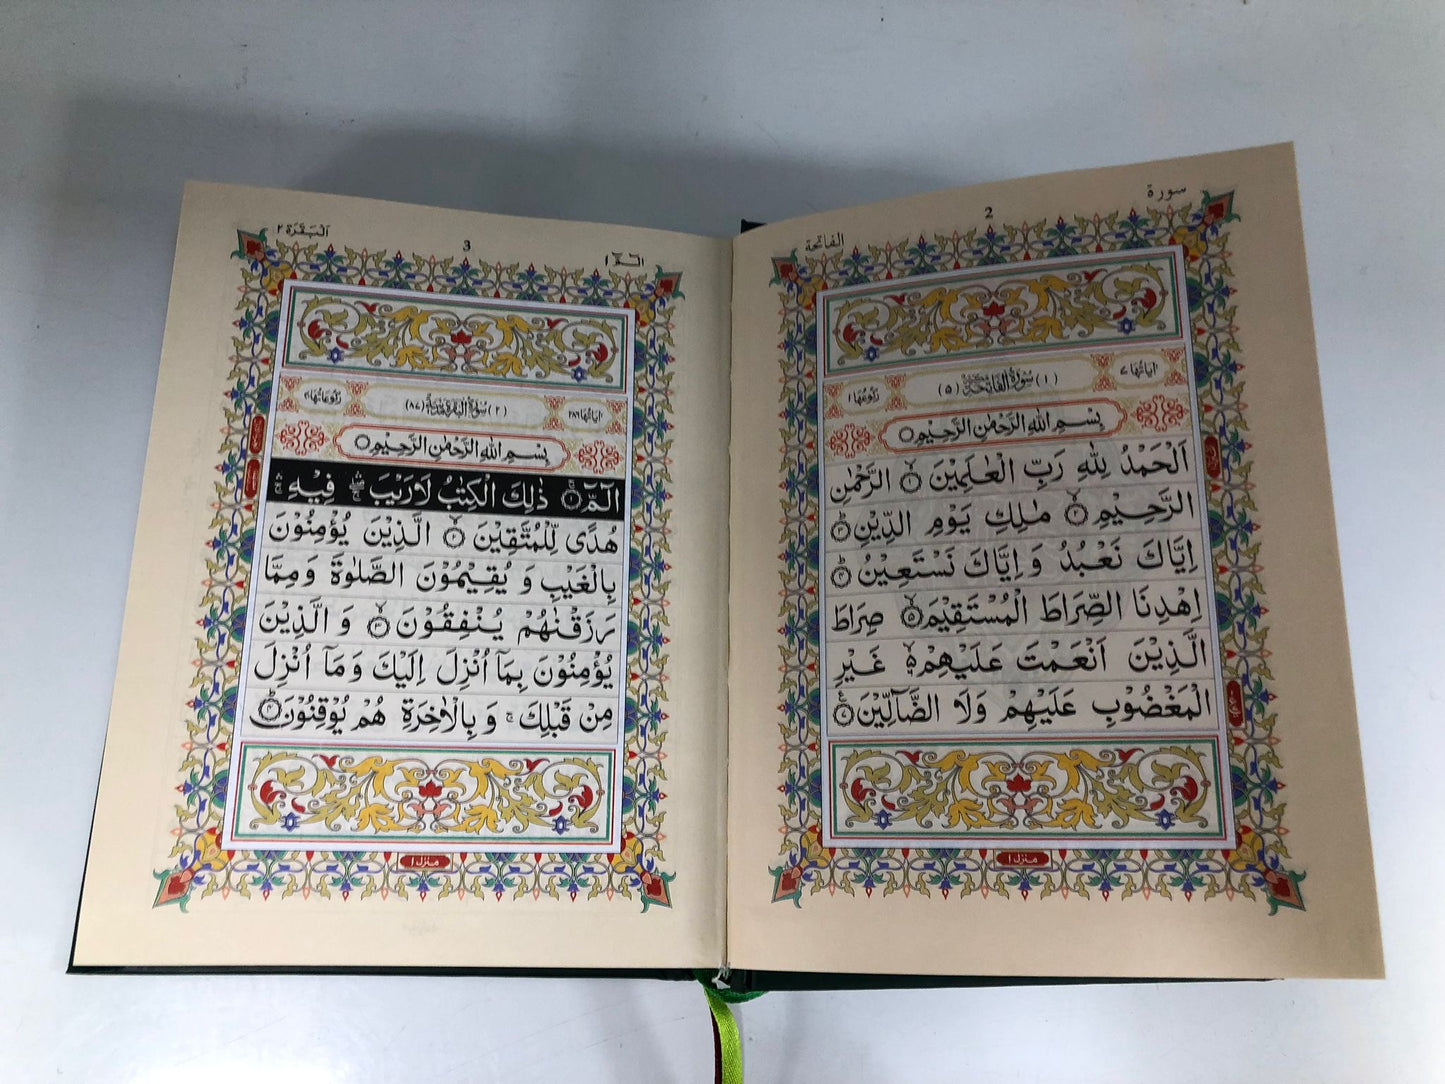 سورة
2
الفاتحة
اٰیَاتُهَا ٧
(١) سُوْرَةُ الْفَاتِحَةِ مَكِّيَّةٌ (٥)
رُكُوْعُهَا ١
بِسْمِ اللّٰهِ الرَّحْمٰنِ الرَّحِيْمِ
اَلْحَمْدُ لِلّٰهِ رَبِّ الْعٰلَمِيْنَ ۙ ١ الرَّحْمٰنِ
الرَّحِيْمِ ۙ ٢ مٰلِكِ يَوْمِ الدِّيْنِ ؕ ٣
اِيَّاكَ نَعْبُدُ وَ اِيَّاكَ نَسْتَعِيْنُ ؕ ٤
اِهْدِنَا الصِّرَاطَ الْمُسْتَقِيْمَ ۙ ٥ صِرَاطَ
الَّذِيْنَ اَنْعَمْتَ عَلَيْهِمْ ۙ ٦ غَيْرِ
الْمَغْضُوْبِ عَلَيْهِمْ وَلَا الضَّآلِّيْنَ ٧
منزل ١
الٓمّٓ ١
3
اَلْبَقَرَة ٢
اٰیَاتُهَا ٢٨٦
(٢) سُوْرَةُ الْبَقَرَةِ مَدَنِيَّةٌ (٨٧)
رُكُوْعَاتُهَا ٤٠
بِسْمِ اللّٰهِ الرَّحْمٰنِ الرَّحِيْمِ
الٓمّٓ ۚ ١ ذٰلِكَ الْكِتٰبُ لَا رَيْبَ ۛ ۖ ۚ فِيْهِ ۛ ۚ
هُدًى لِّلْمُتَّقِيْنَ ۙ ٢ الَّذِيْنَ يُؤْمِنُوْنَ
بِالْغَيْبِ وَ يُقِيْمُوْنَ الصَّلٰوةَ وَ مِمَّا
رَزَقْنٰهُمْ يُنْفِقُوْنَ ۙ ٣ وَ الَّذِيْنَ
يُؤْمِنُوْنَ بِمَاۤ اُنْزِلَ اِلَيْكَ وَ مَاۤ اُنْزِلَ
مِنْ قَبْلِكَ ۚ وَ بِالْاٰخِرَةِ هُمْ يُوْقِنُوْنَ ؕ ٤
منزل ١